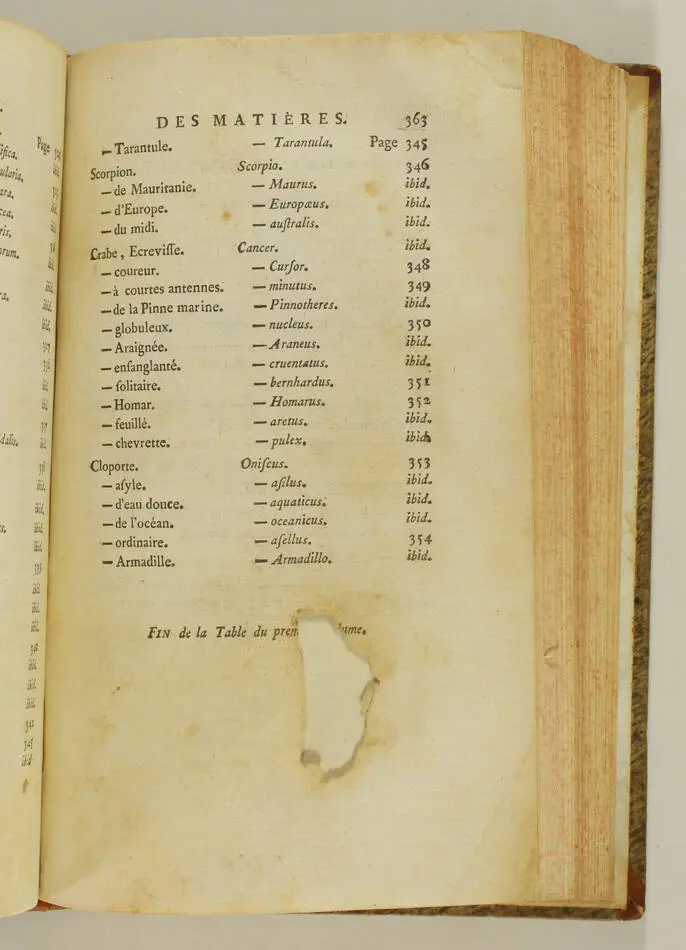 DES MATIÈRES. 363
— Tarantule. — Tarantula. Page 345
Scorpion. Scorpio. 346
— de Mauritanie. — Maurus. ibid.
— d'Europe. — Europæus. ibid.
— du midi. — auſtralis. ibid.
Crabe, Ecreviſſe. Cancer. ibid.
— coureur. — Curſor. 348
— à courtes antennes. — minutus. 349
— de la Pinne marine. — Pinnotheres. ibid.
— globuleux. — nucleus. 350
— Araignée. — Araneus. ibid.
— enſanglanté. — cruentatus. ibid.
— ſolitaire. — bernhardus. 351
— Homar. — Homarus. 352
— feuillé. — aretus. ibid.
— chevrette. — pulex. ibid.
Cloporte. Oniſcus. 353
— aſyle. — aſilus. ibid.
— d'eau douce. — aquaticus. ibid.
— de l'océan. — oceanicus. ibid.
— ordinaire. — aſellus. 354
— Armadille. — Armadillo. ibid.
FIN de la Table du